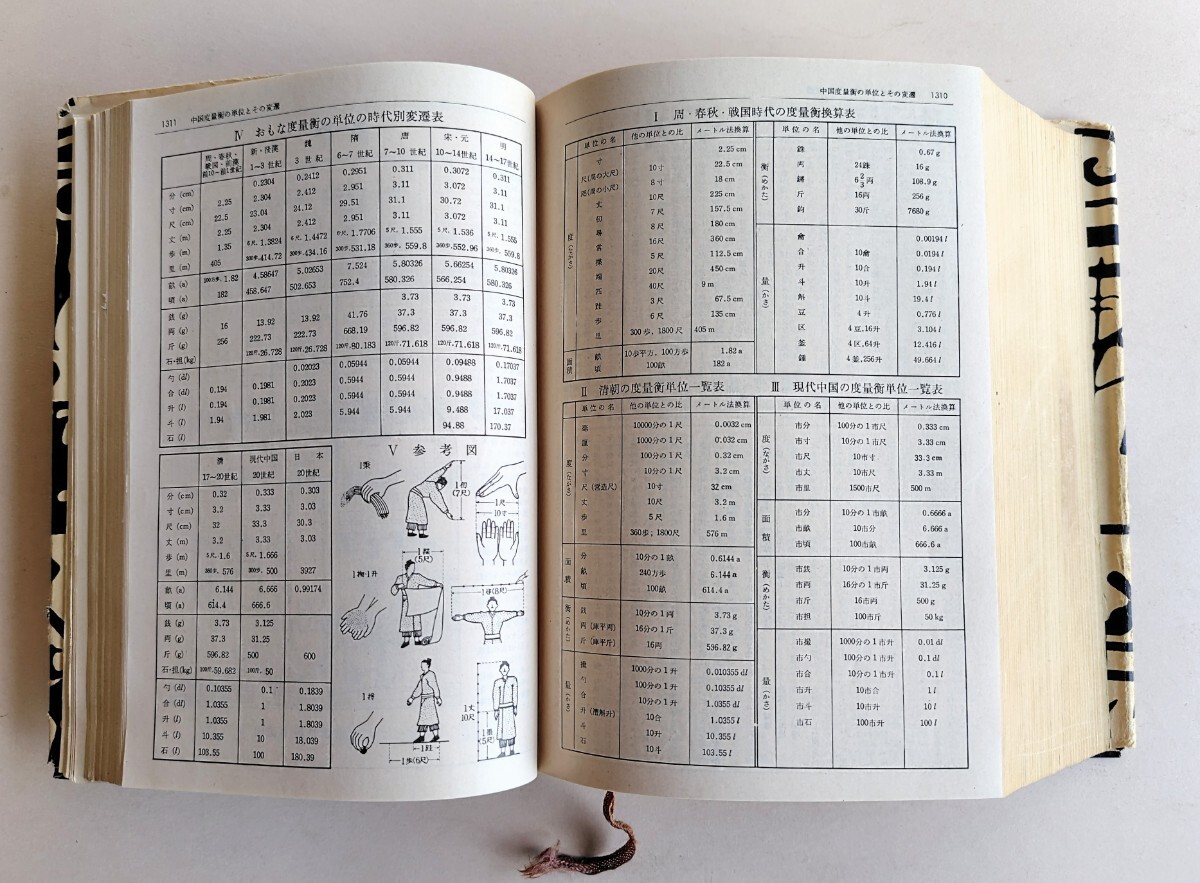 中国度量衡の単位とその変遷 1310
Ⅰ 周・春秋・戦国時代の度量衡換算表
単位の名 他の単位との比 メートル法換算
度(ながさ)
寸 2.25 cm
尺(周の大尺) 10寸 22.5 cm
咫(周の小尺) 8寸 18 cm
丈 10尺 225 cm
仞 7尺 157.5 cm
尋 8尺 180 cm
常 16尺 360 cm
5尺 112.5 cm
端 20尺 450 cm
匹 40尺 9 m
3尺 67.5 cm
歩 6尺 135 cm
里 300歩, 1800尺 405 m
面積
畝 10歩平方, 100方歩 1.82 a
頃 100畝 182 a
単位の名 他の単位との比 メートル法換算
衡(めかた)
銖 0.67 g
両 24銖 16 g
鍰 6 2/3両 108.9 g
斤 16両 256 g
鈞 30斤 7680 g
量(かさ)
龠 0.00194 l
合 10龠 0.0194 l
升 10合 0.194 l
斗 10升 1.94 l
斛 10斗 19.4 l
豆 4升 0.776 l
区 4豆, 16升 3.104 l
釜 4区, 64升 12.416 l
鍾 4釜, 256升 49.664 l
Ⅱ 清朝の度量衡単位一覧表
単位の名 他の単位との比 メートル法換算
度(ながさ)
毫 10000分の1尺 0.0032 cm
釐 1000分の1尺 0.032 cm
分 100分の1尺 0.32 cm
寸 10分の1尺 3.2 cm
尺(営造尺) 10寸 32 cm
丈 10尺 3.2 m
歩 5尺 1.6 m
里 360歩; 1800尺 576 m
面積
分 10分の1畝 0.6144 a
畝 240方歩 6.144 a
頃 100畝 614.4 a
衡(めかた)
銭 10分の1両 3.73 g
両(庫平両) 16分の1斤 37.3 g
斤(庫平斤) 16両 596.82 g
量(かさ)
撮 1000分の1升 0.010355 dl
勺 100分の1升 0.10355 dl
合 10分の1升 1.0355 dl
升(漕斛升) 10合 1.0355 l
斗 10升 10.355 l
石 10斗 103.55 l
Ⅲ 現代中国の度量衡単位一覧表
単位の名 他の単位との比 メートル法換算
度(ながさ)
市分 100分の1市尺 0.333 cm
市寸 10分の1市尺 3.33 cm
市尺 10市寸 33.3 cm
市丈 10市尺 3.33 m
市里 1500市尺 500 m
面積
市分 10分の1市畝 0.6666 a
市畝 10市分 6.666 a
市頃 100市畝 666.6 a
衡(めかた)
市銭 10分の1市両 3.125 g
市両 16分の1市斤 31.25 g
市斤 16市両 500 g
市担 100市斤 50 kg
量(かさ)
市撮 1000分の1市升 0.01 dl
市勺 100分の1市升 0.1 dl
市合 10分の1市升 0.1 l
市升 10市合 1 l
市斗 10市升 10 l
市石 100市升 100 l
1311 中国度量衡の単位とその変遷
Ⅳ おもな度量衡の単位の時代別変遷表
周・春秋・戦国・前漢 前10〜前1世紀 新・後漢 1〜3世紀 魏 3世紀 隋 6〜7世紀 唐 7〜10世紀 宋・元 10〜14世紀 明 14〜17世紀
分(cm) 0.2304 0.2412 0.2951 0.311 0.3072 0.311
寸(cm) 2.25 2.304 2.412 2.951 3.11 3.072 3.11
尺(cm) 22.5 23.04 24.12 29.51 31.1 30.72 31.1
丈(m) 2.25 2.304 2.412 2.951 3.11 3.072 3.11
歩(m) 1.35 6尺, 1.3824 6尺, 1.4472 6尺, 1.7706 5尺, 1.555 5尺, 1.536 5尺, 1.555
里(m) 405 300歩, 414.72 300歩, 434.16 300歩, 531.18 360歩, 559.8 360歩, 552.96 360歩, 559.8
畝(a) 100方歩, 1.82 4.58647 5.02653 7.524 5.80326 5.66254 5.80326
頃(a) 182 458.647 502.653 752.4 580.326 566.254 580.326
銭(g) 3.73 3.73 3.73
両(g) 16 13.92 13.92 41.76 37.3 37.3 37.3
斤(g) 256 222.73 222.73 668.19 596.82 596.82 596.82
石・担(kg) 120斤, 26.728 120斤, 26.728 120斤, 80.183 120斤, 71.618 120斤, 71.618 120斤, 71.618
勺(dl) 0.02023 0.05944 0.05944 0.09488 0.17037
合(dl) 0.194 0.1981 0.2023 0.5944 0.5944 0.9488 1.7037
升(l) 0.194 0.1981 0.2023 0.5944 0.5944 0.9488 1.7037
斗(l) 1.94 1.981 2.023 5.944 5.944 9.488 17.037
石(l) 94.88 170.37
清 17〜20世紀 現代中国 20世紀 日本 20世紀
分(cm) 0.32 0.333 0.303
寸(cm) 3.2 3.33 3.03
尺(cm) 32 33.3 30.3
丈(m) 3.2 3.33 3.03
歩(m) 5尺, 1.6 5尺, 1.666
里(m) 360歩, 576 300歩, 500 3927
畝(a) 6.144 6.666 0.99174
頃(a) 614.4 666.6
銭(g) 3.73 3.125
両(g) 37.3 31.25
斤(g) 596.82 500 600
石・担(kg) 100斤, 59.682 100斤, 50
勺(dl) 0.10355 0.1 0.1839
合(dl) 1.0355 1 1.8039
升(l) 1.0355 1 1.8039
斗(l) 10.355 10 18.039
石(l) 103.55 100 180.39
Ⅴ 参考図
1秉
1仞(7尺)
1尺
10寸
1掬・1升
(5尺)
1尋(8尺)
1丈
10尺
(5尺)
1跬
1歩(6尺)